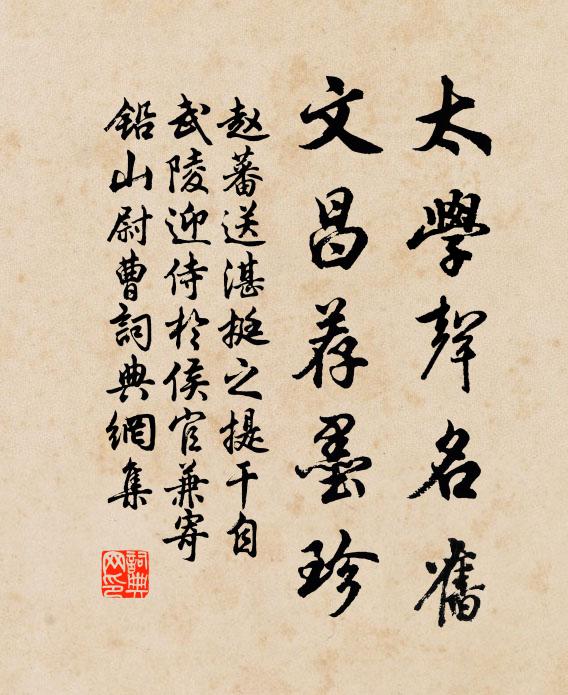 太學聲名舊
文昌荐墨珍
赵蕃送湛挺之提干自
武陵迎侍於侯官兼寄
铅山尉曹詞典網集
詞典網印